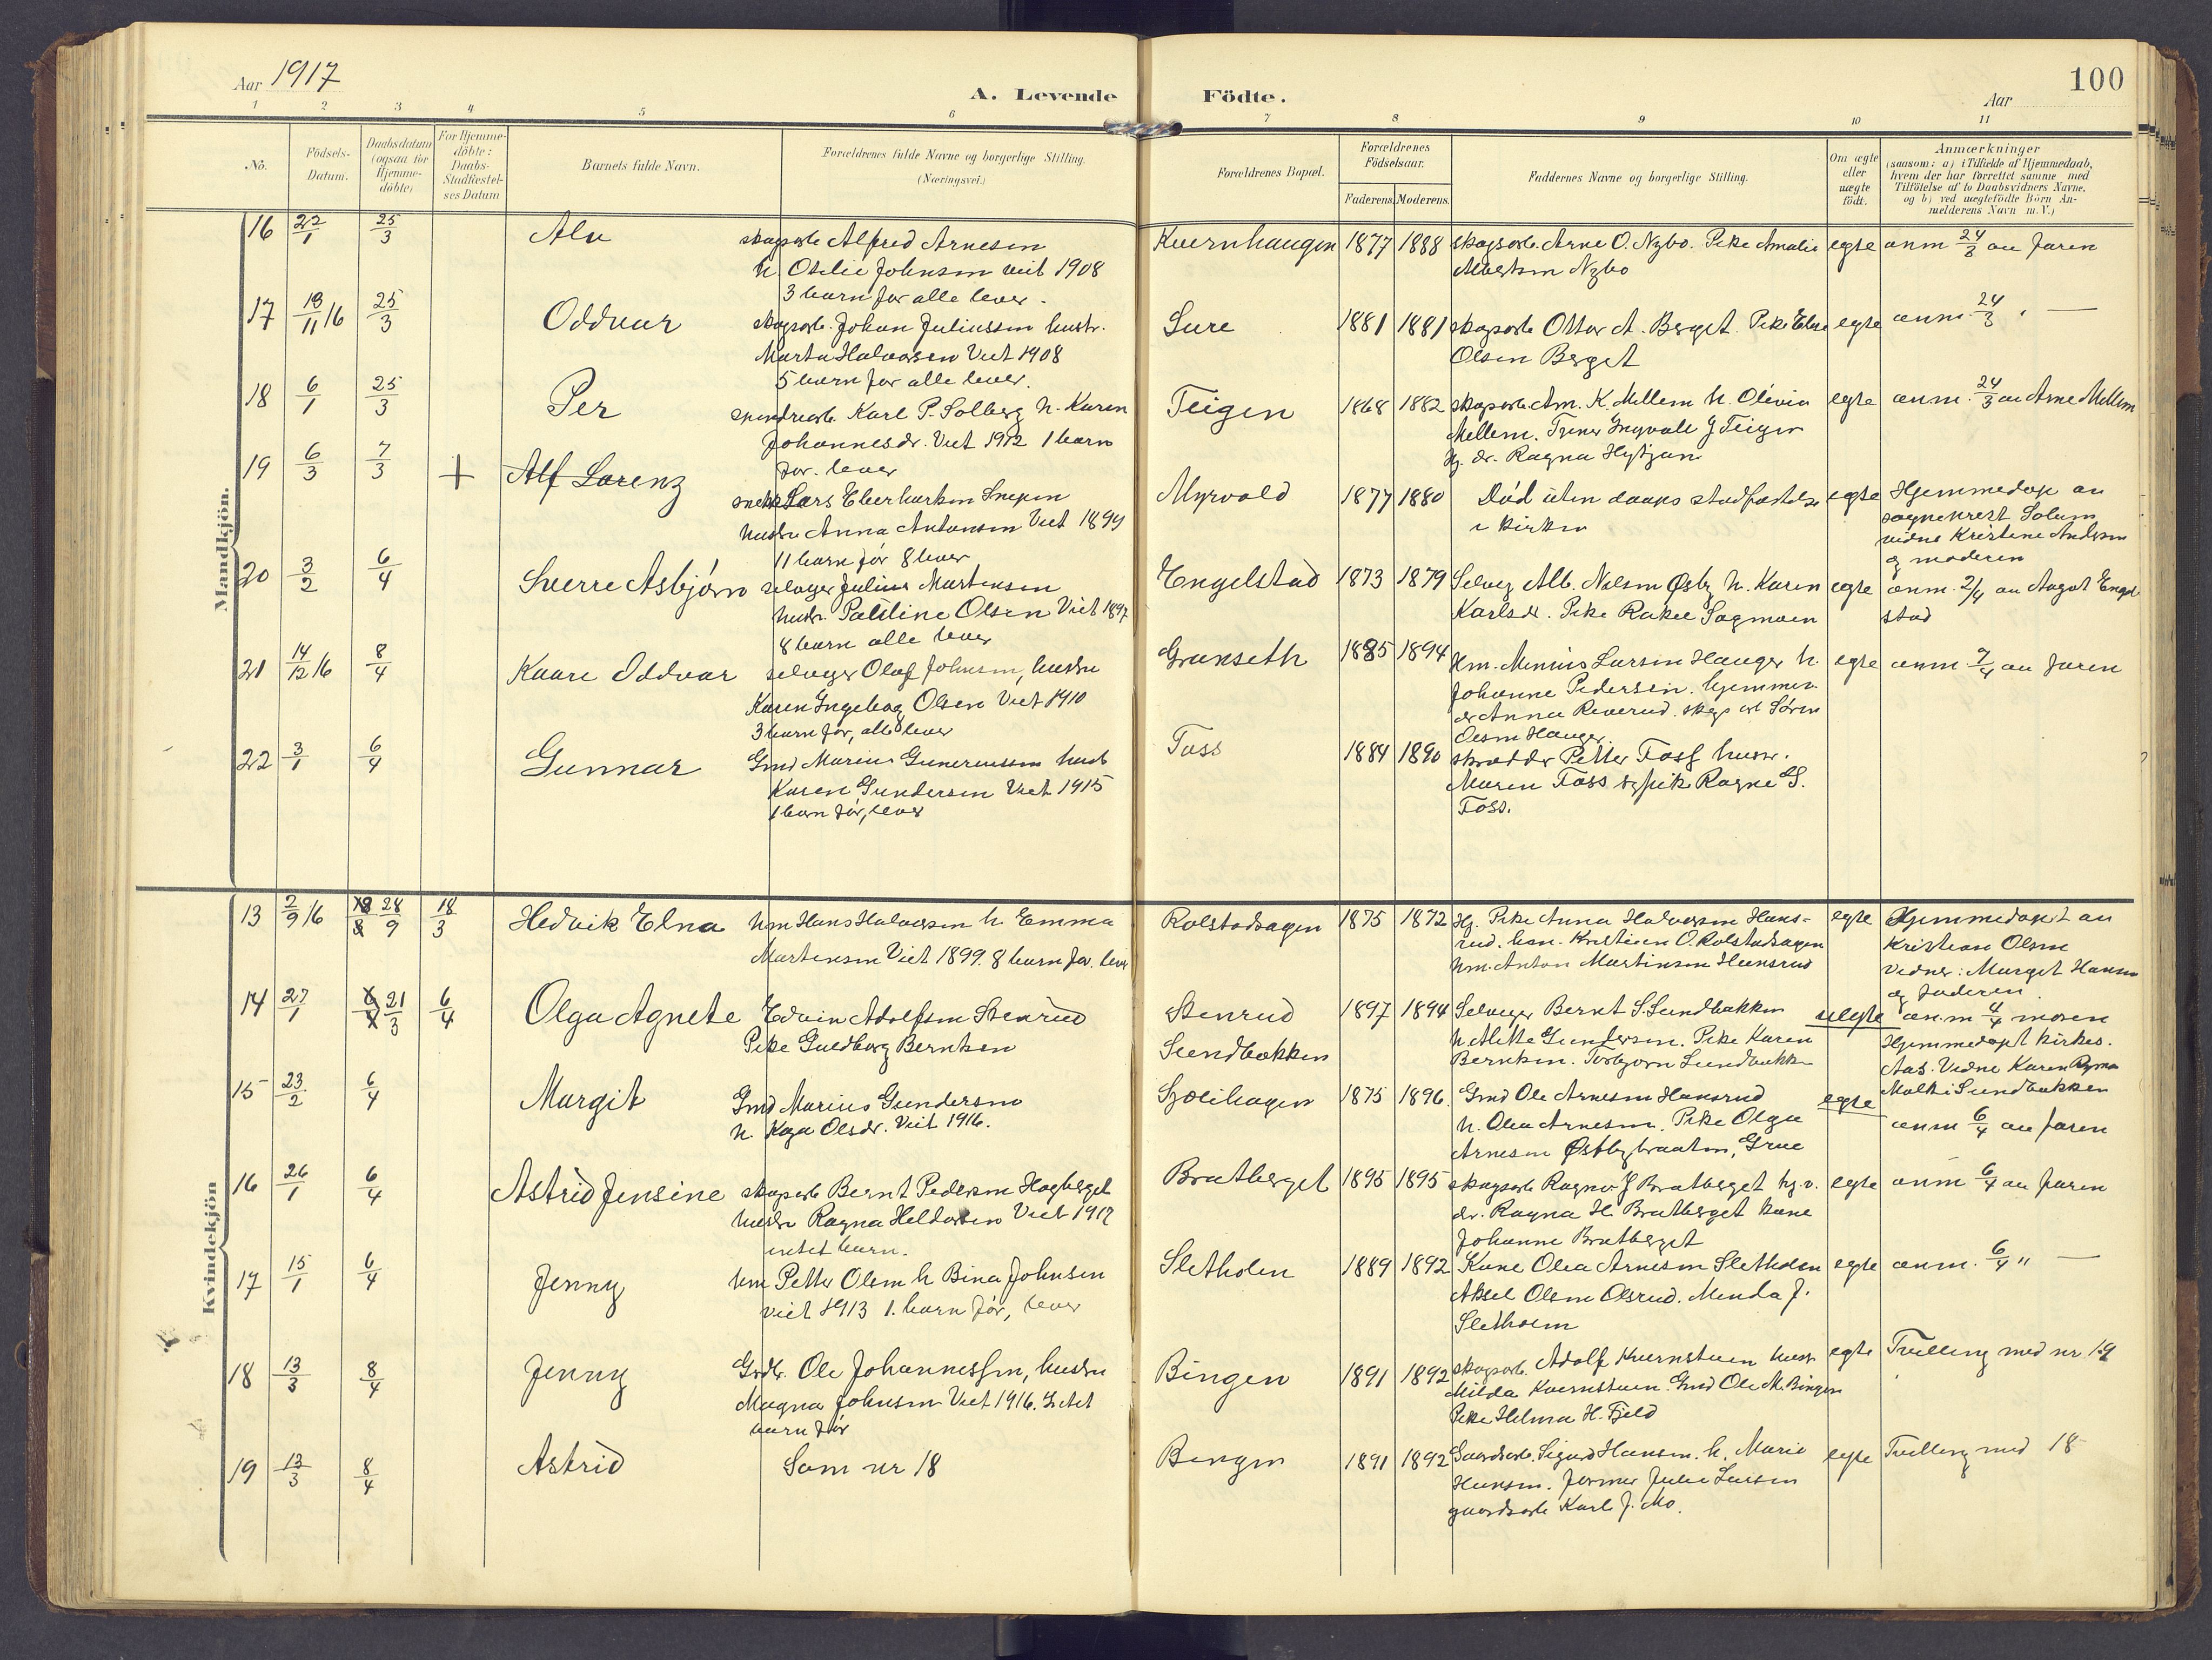 Aar 1917
A. Levende Födte.
Aar
100
1 2 3 4 5 6 7 8 9 10 11
No.
Födsels-Datum.
Daabsdatum (ogsaa for Hjemme-döbte)
For Hjemme-döbte: Daabs-Stadfæstel-ses Datum
Barnets fulde Navn.
Forældrenes fulde Navne og borgerlige Stilling. (Næringsvei.)
Forældrenes Bopæl.
Forældrenes Födselsaar.
Faderens. Moderens.
Faddernes Navne og borgerlige Stilling.
Om ægte eller uægte födt.
Anmærkninger
(saasom: a) i Tilfælde af Hjemmedaab,
hvem der har forrettet samme med
Tilföielse af to Daabsvidners Navne,
og b) ved uægtefödte Börn An-
melderens Navn m. V.)
Mandkjön.
16 22/1 25/3 Alv
skogsarb. Alfred Arnesen
h. Otilie Johnsen viet 1908
3 barn før alle lever.
Kvernhaugen 1877 1888
skogsarb. Arne O. Nybo. Pike Amalie
Albertsen Nybo
egte
anm 24/3 av faren
17 13/11 16 25/3 Oddvar
skogsarb. Johan Juliussen hustr.
Marta Halvorsen Viet 1908
5 barn før alle lever.
Sure 1881 1881
skogsarb Ottar A. Berget. Pike Elise
Olsen Berget
egte
anm. 24/3 " —
18 6/1 25/3 Per
Karl P. Solberg h. Karen
Johannesdr. Viet 1912 1 barn
før. lever
Teigen 1868 1882
skogsarb Arn. K. Mellem h. Olivia
Mellem. Ingvald J Teigen
Hj. dr. Ragna
egte
anm. 24/3 av Arne Mellem
19 6/3 7/3 + Alf Lorenz
snekk Lars Eberhartsen
hustru Anna Antonsen Viet 1899
11 barn før 8 lever
Myrvold 1877 1880
Død uten daaps stadfæstelse
i kirken
egte
Hjemmedøpt av
sogneprest Solum
vidne Kristine Andersen
og moderen
20 3/2 6/4 Sverre Asbjørn
selveger Julius Martinsen
hustr. Pauline Olsen Viet 1897
8 barn alle lever
Engelstad 1873 1879
Selveg Alb. Nelsen Øsby h. Karen
Karlsdr. Pike Rakel Sagmoen
egte
anm. 2/4 av Aagot Engel-
stad
21 14/12 16 8/4 Kaare Oddvar
selveger Olaf Johnsen, hustru
Karen Ingeborg Olsen Viet 1910
3 barn før, alle lever
Granseth 1885 1894
Hm. Larsen Hauger h.
Johanne Pedersen. hjemmev.
dr Anna Reverud. skogs arb Søren
Olsen Hauger.
egte
anm 7/4 av faren
22 3/1 6/4 Gunnar
Gmd Marius Guneriussen hust
Karen Gundersen Viet 1915
1 barn før, lever
Foss 1884 1890
skrædder Petter Foss hustr.
Maren Foss sypike Ragne G.
Foss.
Kvindekjön
13 2/9 16 28/9 18/3 Hedvik Elna
hm Hans Halvorsen h. Emma
Martinsen Viet 1899. 8 barn før. lever
Rolstadsagen 1875 1872
Hj. Pike Anna Halvorsen Hans-
rud. hm. Kristian O. Rolstadsagen
hm. Anton Martinsen Hansrud
egte
Hjemmedøpt av
Kristian Olsen
Vidner: Margit Hansen
og faderen.
14 27/1 21/3 6/4 Olga Agnete
Edvin Adolfsen Stenrud
Pike Guldborg Berntsen
Stenrud
Sundbakken
1897 1894
Selveger Bernt S. Sundbakken
h Alette Gundersen. Pike Karen
Berntsen. Torbjørn Sundbakken
uegte
anm 4/4 moren
Hjemmedøpt kirkes.
Aas. Vidne Karen
Malki Sundbakken
15 23/2 6/4 Margit
Gmd Marius Gundersen
h. Kaja Olsdr. Viet 1916.
1875 1896
Gmd Ole Arnesen Hansrud
h. Olea Arnesen. Pike Olga
Arnesen Østbybraaten, Grue
egte
anm 6/4 av faren
16 26/1 6/4 Astrid Jensine
skogsarb Bernt Pedersen Hogberget
hustru Ragna Heldorsen Viet 1917
intet barn.
Bratberget 1895 1895
skogsarb Ragnv. J Bratberget hj. v.
dr. Ragna H. Bratberget kone
Johanne Bratberget
egte
anm 6/4 av faren
17 15/1 6/4 Jenny
hm Petter Olsen h Bina Johnsen
viet 1913 1. barn før, lever
Sletholen 1889 1892
Kone Olea Arnesen Sletholen
Aksel Olsen Olsrud. Menda J.
Sletholen
egte
anm. 6/4 " —
18 13/3 8/4 Jenny
Grdbr. Ole Johannessen, hustru
Magna Johnsen Viet 1916. Intet
barn før
Bingen 1891 1892
skogsarb. Adolf Kvernstuen hustr
Milda Kvernstuen. Gmd Ole M. Bingen
Pike Helma H. Fjeld
egte
Tvilling med nr 19
19 13/3 8/4 Astrid
Som nr 18
Bingen 1891 1892
Gaardsarb. Sigurd Hansen. h. Marie
Hansen. Julie Larsen
gaardsarb Karl J. Mo.
egte
Tvilling med 18